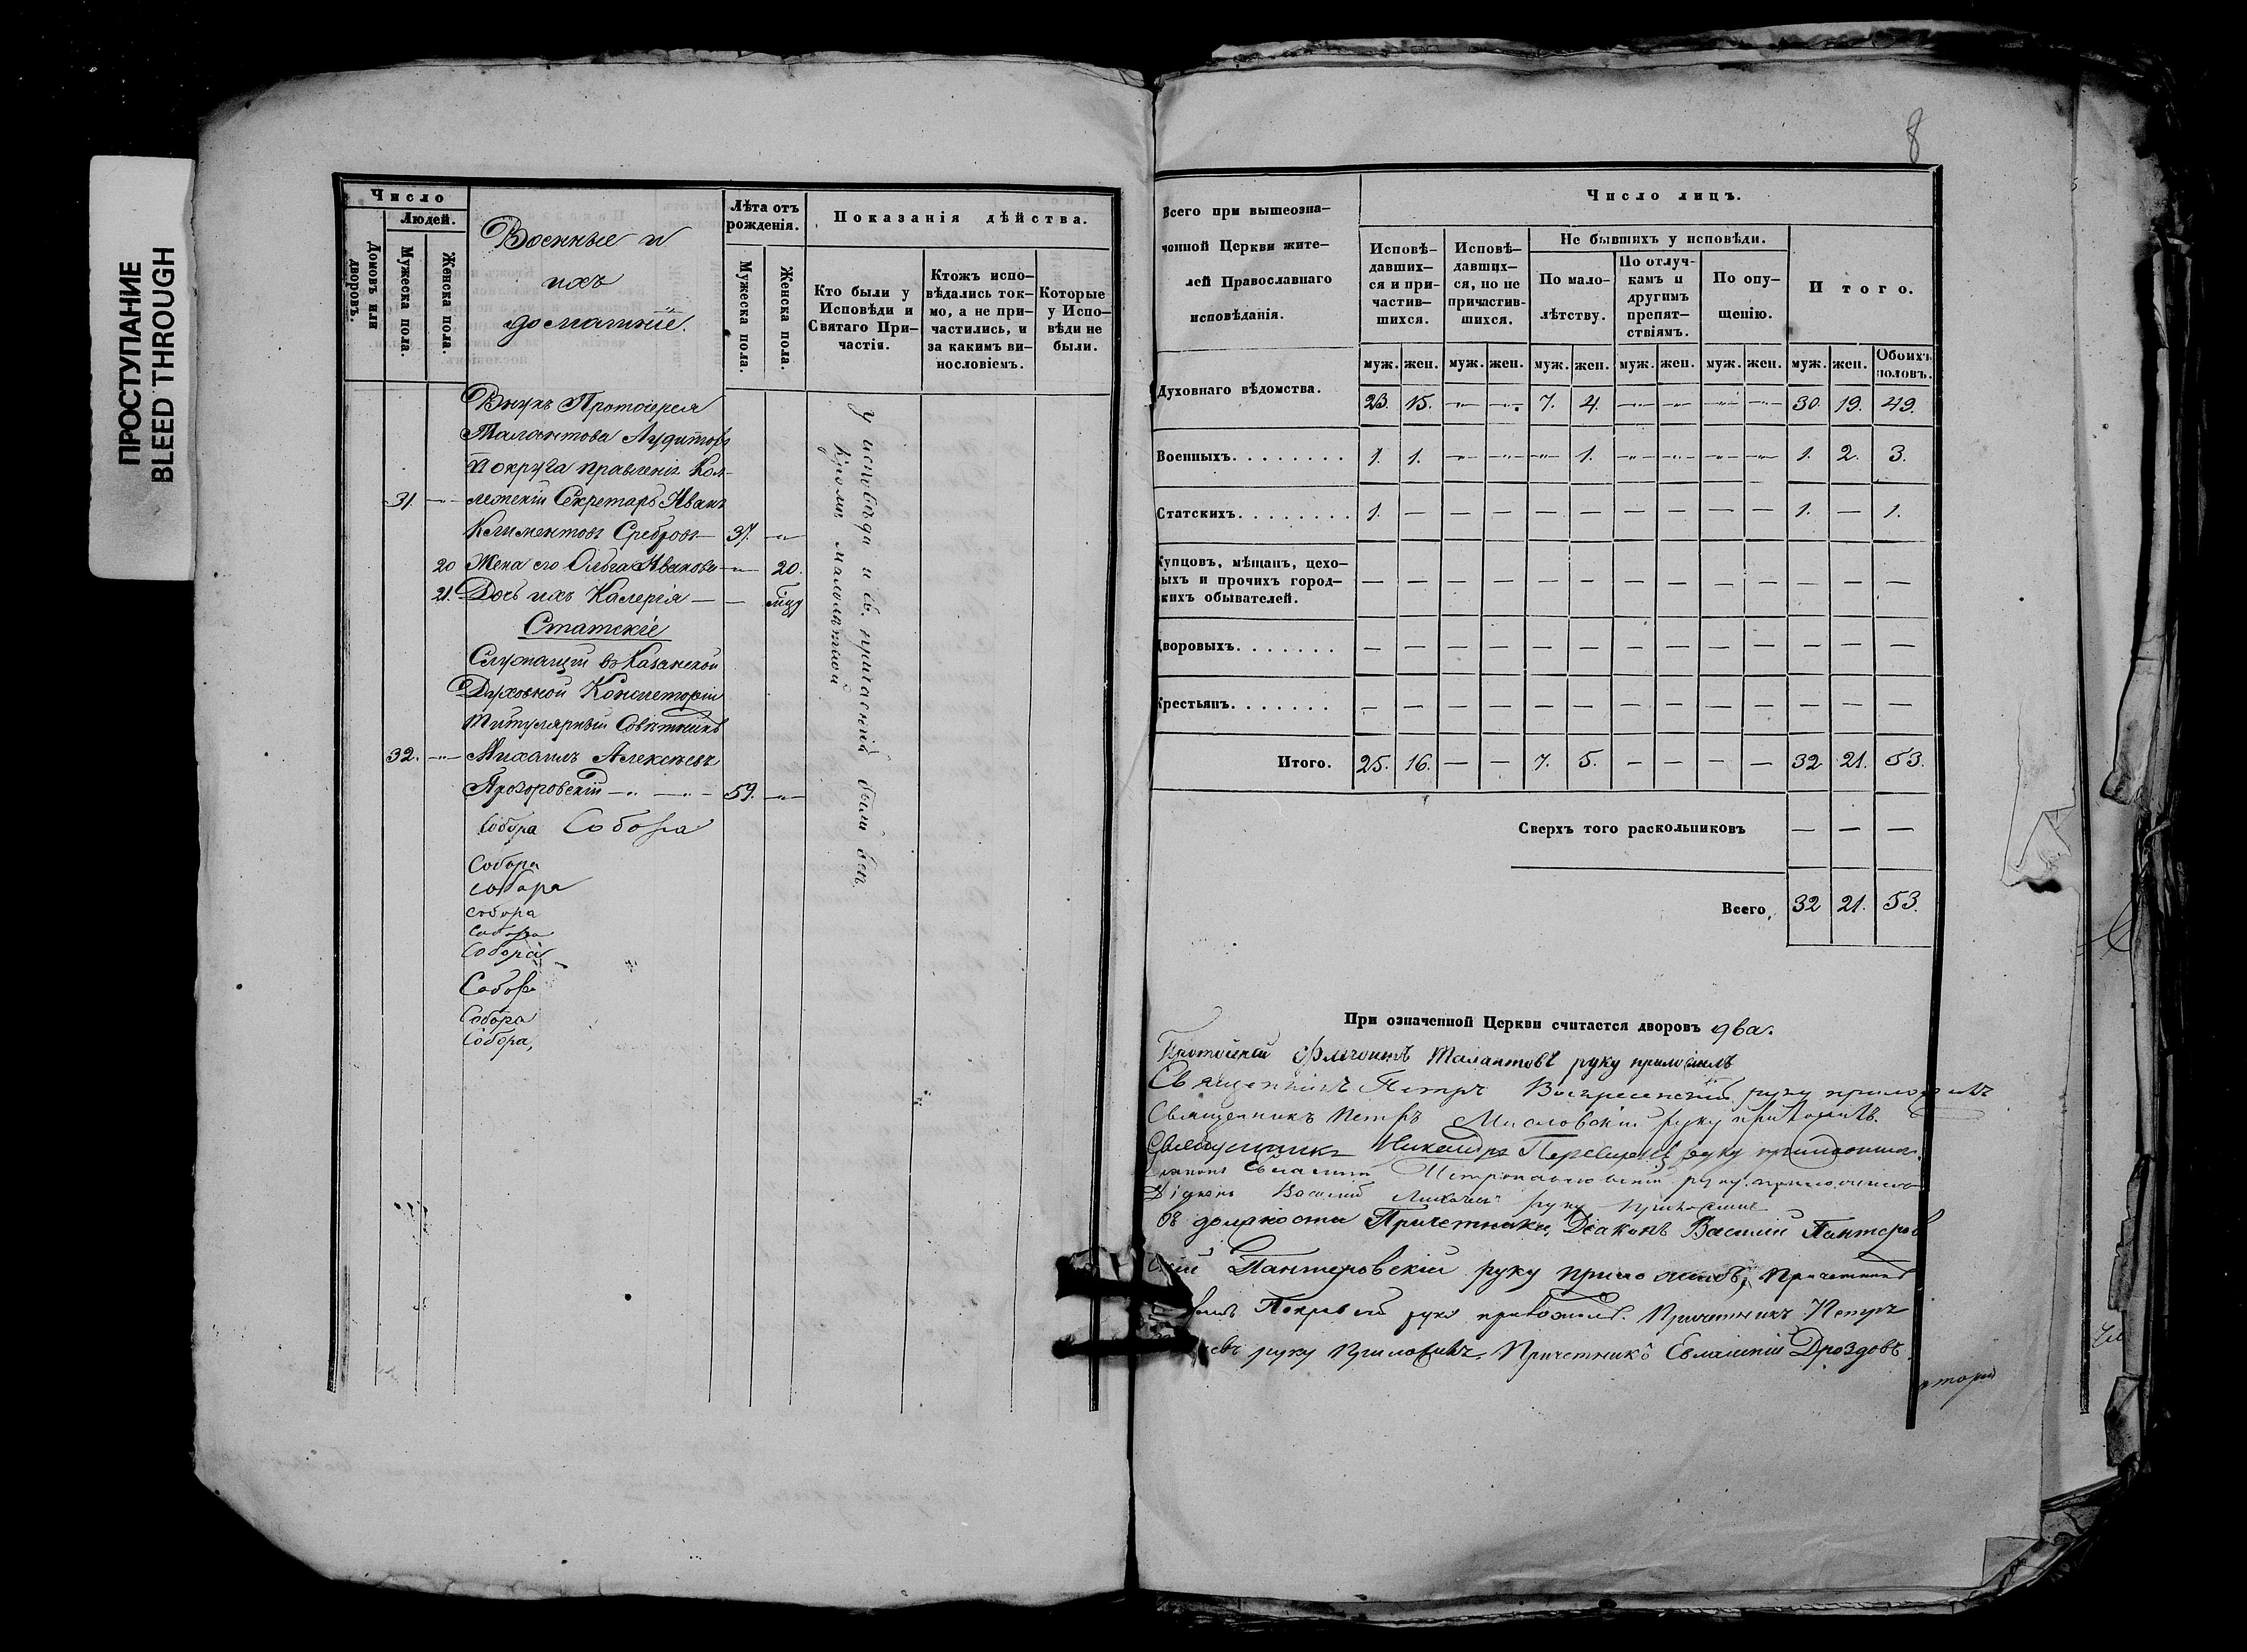 ПРОСТУПАНИЕ
BLEED THROUGH
Число
Людей.
Домовъ или дворовъ.
Мужеска пола.
Женска пола.
Военные и
ихъ
домашніе.
Лѣта отъ рожденія.
Мужеска пола.
Женска пола.
Показанія дѣйства.
Кто были у Исповѣди и Святаго Причастія.
Ктожъ исповѣдались токмо, а не причастились, и за какимъ винословіемъ.
Которые у Исповѣди не были.
Внукъ Протоіерея
Талантова Аудиторъ
округа правленія Кол-
31. лежскій Секретарь Иванъ
Климентовъ Сребровъ 37.
20 Жена его Ольга Иванова 20.
21. Дочь ихъ Калерія
Статскіе
Служащій въ Казанской
Духовной Консисторіи
Титулярный Совѣтникъ
32. Михаилъ Алексѣевъ
Прозоровскій 59.
у исповѣди и св. причастія были всѣ
Кромѣ малолѣтной
Собора Собора
Собора
собора
собора
собора
Собора
Собора
Собора
Собора,
8
Всего при вышеозна-
ченной Церкви жите-
лей Православнаго
исповѣданія.
Число лицъ.
Исповѣ-
давших-
ся и при-
частив-
шихся.
Исповѣ-
давших-
ся, но не
причастив-
шихся.
Не бывшихъ у исповѣди.
По мало-
лѣтству.
По отлуч-
камъ и
другимъ
препят-
ствіямъ.
По опу-
щенію.
Итого.
муж. жен. муж. жен. муж. жен. муж. жен. муж. жен. муж. жен. Обоихъ половъ.
Духовнаго вѣдомства. 23. 15. — — 7. 4. — — — — 30. 19. 49.
Военныхъ. 1. 1. — — — 1. — — — — 1. 2. 3.
Статскихъ. 1. — — — — — — — — — 1. — 1.
Купцовъ, мѣщанъ, цехо-
выхъ и прочихъ город-
скихъ обывателей. — — — — — — — — — — — — —
Дворовыхъ. — — — — — — — — — — — — —
Крестьянъ. — — — — — — — — — — — — —
Итого. 25. 16. — — 7. 5. — — — — 32 21. 53.
Сверхъ того раскольниковъ — — —
Всего, 32 21. 53.
При означенной Церкви считается дворовъ два.
Протоіерей Талантовъ руку приложилъ
Священникъ Петръ Воскресенскій руку приложилъ
Священникъ Петръ Масловскій руку приложилъ.
Священникъ руку приложилъ.
руку приложилъ
Діаконъ Василій руку приложилъ
Въ должности Причетника, Діаконъ Василій Пантеров
скій Пантеровскій руку приложилъ, Причетникъ
руку приложилъ. Причетникъ Петръ
руку приложилъ. Причетникъ Евлампій Дроздовъ.